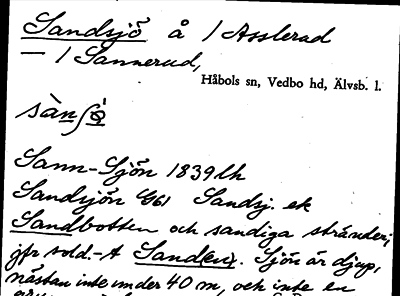 Sandsjö å / Asslerud
— / Sannerud,
Håbols sn, Vedbo hd, Älvsb. l.
Sann-Sjön 1839 lh
Sandsjön G61 Sandsj. ek
Sandbotten och sandiga stränder,
jfr sold.-t Sand(en). Sjön är djup,
nästan inte under 40 m, och inte en